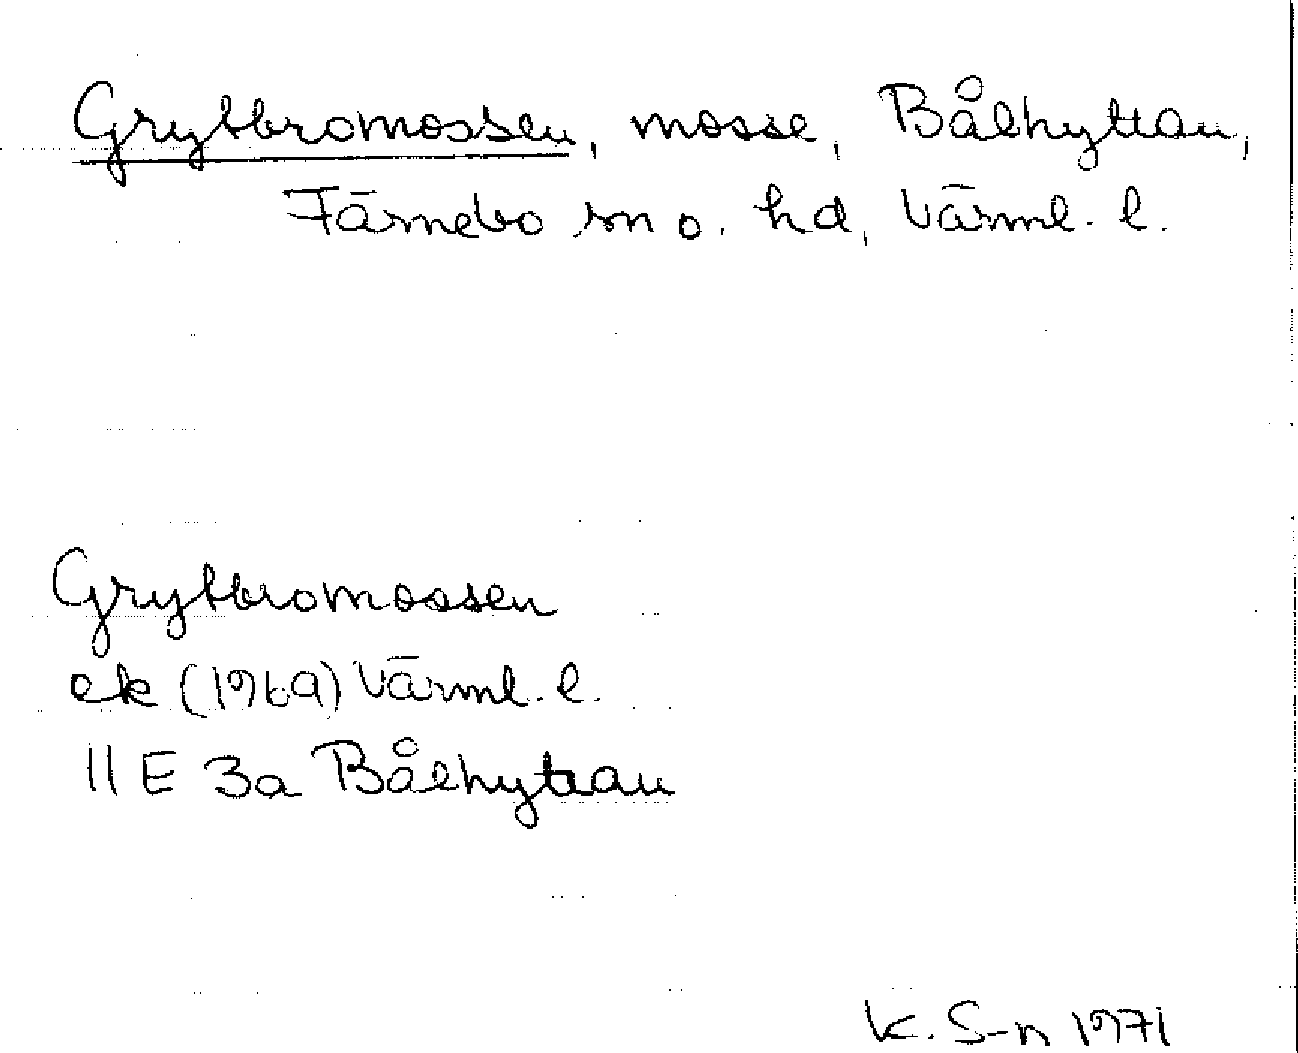 Grytbromossen, mosse, Bålhyttan,
Färnebo sn o. hd, Värml. l.
Grytbromossen
ek (1969) Värml. l.
11 E 3a Bålhyttan
K. S-n 1971